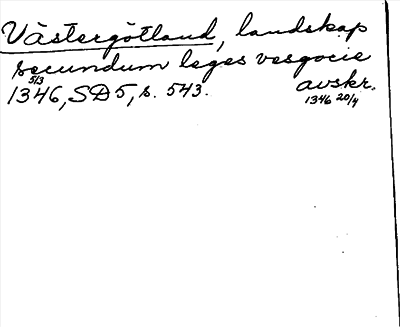 Västergötland, landskap
secundum leges vesgocie
5/3
1346, SD 5, s. 543. avskr.
1346 20/4